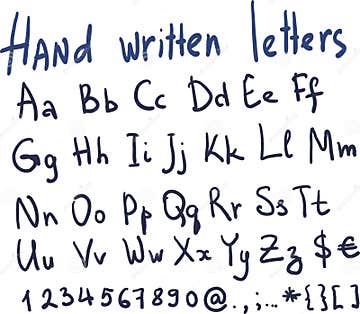 HAnd written letters
Aa Bb Cc Dd Ee Ff
Gg Hh Ii Jj Kk Ll Mm
Nn Oo Pp Qq Rr Ss Tt
Uu Vv Ww Xx Yy Zz $ €
1 2 3 4 5 6 7 8 9 0 @ . , ; : .. * { } [ ]